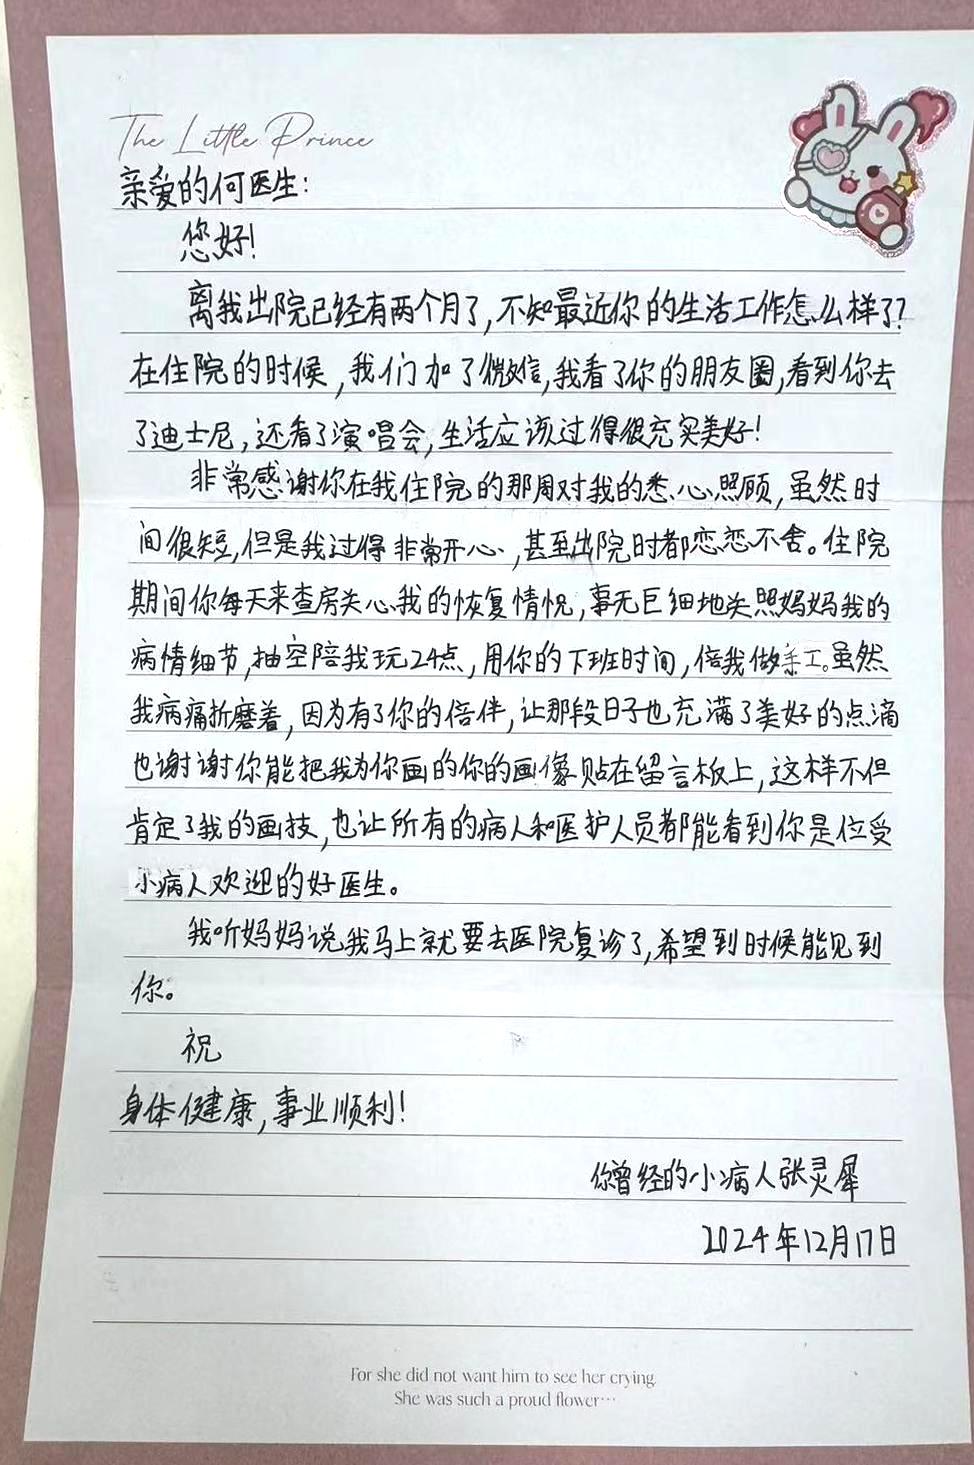 The Little Prince
亲爱的何医生：
您好！
离我出院已经有两个月了，不知最近你的生活工作怎么样了？
在住院的时候，我们加了微信，我看了你的朋友圈，看到你去
了迪士尼，还看了演唱会，生活应该过得很充实美好！
非常感谢你在我住院的那周对我的悉心照顾，虽然时
间很短，但是我过得非常开心，甚至出院时都恋恋不舍。住院
期间你每天来查房关心我的恢复情况，事无巨细地关照妈妈我的
病情细节，抽空陪我玩24点，用你的下班时间，倍我做手工。虽然
我病痛折磨着，因为有了你的倍伴，让那段日子也充满了美好的点滴
也谢谢你能把我为你画的你的画像贴在留言板上，这样不但
肯定了我的画技，也让所有的病人和医护人员都能看到你是位受
小病人欢迎的好医生。
我听妈妈说我马上就要去医院复诊了，希望到时候能见到
你。
祝
身体健康，事业顺利！
你曾经的小病人张灵犀
2024年12月17日
For she did not want him to see her crying.
She was such a proud flower···